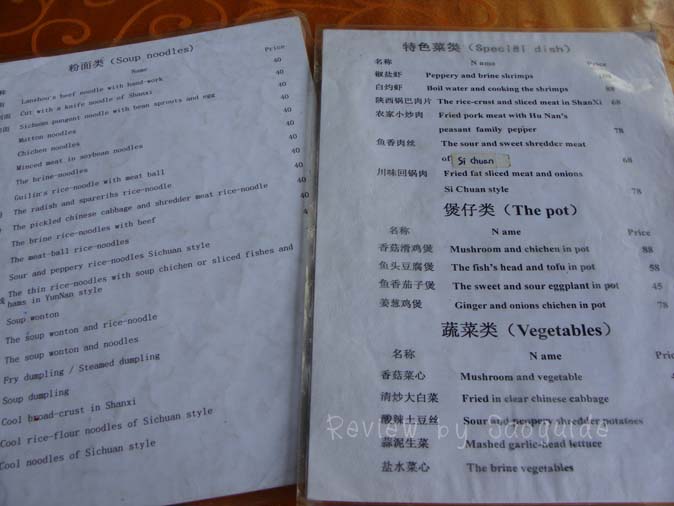 粉面类（Soup noodles)
Name Price
Lanzhou's beef noodle with hand-work 40
Cut with a knife noodle of Shanxi 40
Sichuan pungent noodle with bean sprouts and egg 40
Mutton noodles 40
Chichen noodles 40
Minced meat in soybean noodles 40
The brine-noodles 40
Guilin's rice-noodle with meat ball 40
The radish and spareribs rice-noodle 40
The pickled chinese cabbage and shredder meat rice-noodle 40
The brine rice-noodles with beef
The meat-ball rice-noodles
Sour and peppery rice-noodles Sichuan style
The thin rice-noodles with soup chichen or sliced fishes and
hams in YunNan style
Soup wonton
The soup wonton and rice-noodle
The soup wonton and noodles
Fry dumpling / Steamed dumpling
Soup dumpling
Cool broad-crust in Shanxi
Cool rice-flour noodles of Sichuan style
Cool noodles of Sichuan style
特色菜类（Special dish)
名称 N ame Price
椒盐虾 Peppery and brine shrimps
白灼虾 Boil water and cooking the shrimps
陕西锅巴肉片 The rice-crust and sliced meat in ShanXi 68
农家小炒肉 Fried pork meat with Hu Nan's
peasant family pepper 78
鱼香肉丝 The sour and sweet shredder meat
of Si chuan 68
川味回锅肉 Fried fat sliced meat and onions
Si Chuan style 78
煲仔类（The pot)
名称 N ame Price
香菇滑鸡煲 Mushroom and chichen in pot 88
鱼头豆腐煲 The fish's head and tofu in pot 58
鱼香茄子煲 The sweet and sour eggplant in pot 45
姜葱鸡煲 Ginger and onions chichen in pot 78
蔬菜类（Vegetables)
名称 N ame Price
香菇菜心 Mushroom and vegetable
清炒大白菜 Fried in clear chinese cabbage
酸辣土豆丝 Sour and peppery shredder potatoes
蒜泥生菜 Mashed garlic-head lettuce
盐水菜心 The brine vegetables
Review by Saoguide